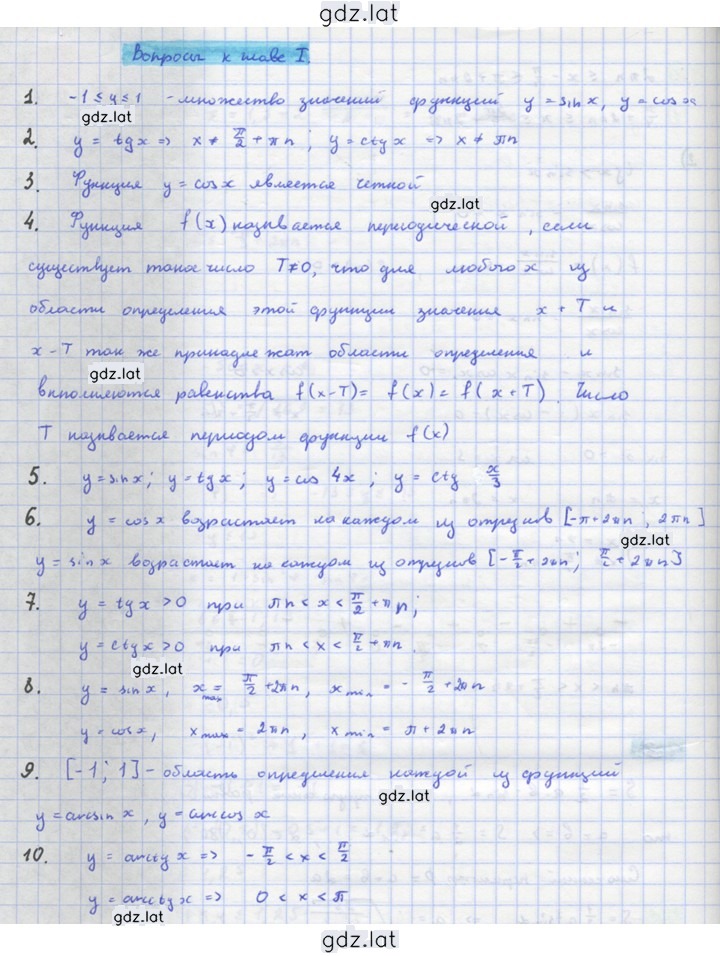 gdz.lat
Вопросы к главе I.
1. -1 ≤ y ≤ 1 - множество значений функций y = sin x, y = cos x
gdz.lat
2. y = tg x => x ≠ π/2 + πn ; y = ctg x => x ≠ πn
3. Функция y = cos x является четной
gdz.lat
4. Функция f(x) называется периодической, если
существует такое число T≠0, что для любого x из
области определения этой функции значения x + T и
x - T так же принадлежат области определения и
gdz.lat
выполняются равенства f(x-T) = f(x) = f(x+T). Число
T называется периодом функции f(x)
5. y = sin x; y = tg x ; y = cos 4x ; y = ctg x/3
6. y = cos x возрастает на каждом из отрезков [-π+2πn ; 2πn]
gdz.lat
y = sin x возрастает на каждом из отрезков [-π/2+2πn ; π/2+2πn]
7. y = tg x > 0 при πn < x < π/2 + πn;
y = ctg x > 0 при πn < x < π/2 + πn.
gdz.lat
8. y = sin x, x max = π/2 + 2πn, x min = - π/2 + 2πn
y = cos x, x max = 2πn, x min = π + 2πn
9. [-1; 1] - область определения каждой из функций
gdz.lat
y = arcsin x, y = arccos x
10. y = arctg x => - π/2 < x < π/2
y = arcctg x => 0 < x < π
gdz.lat
gdz.lat